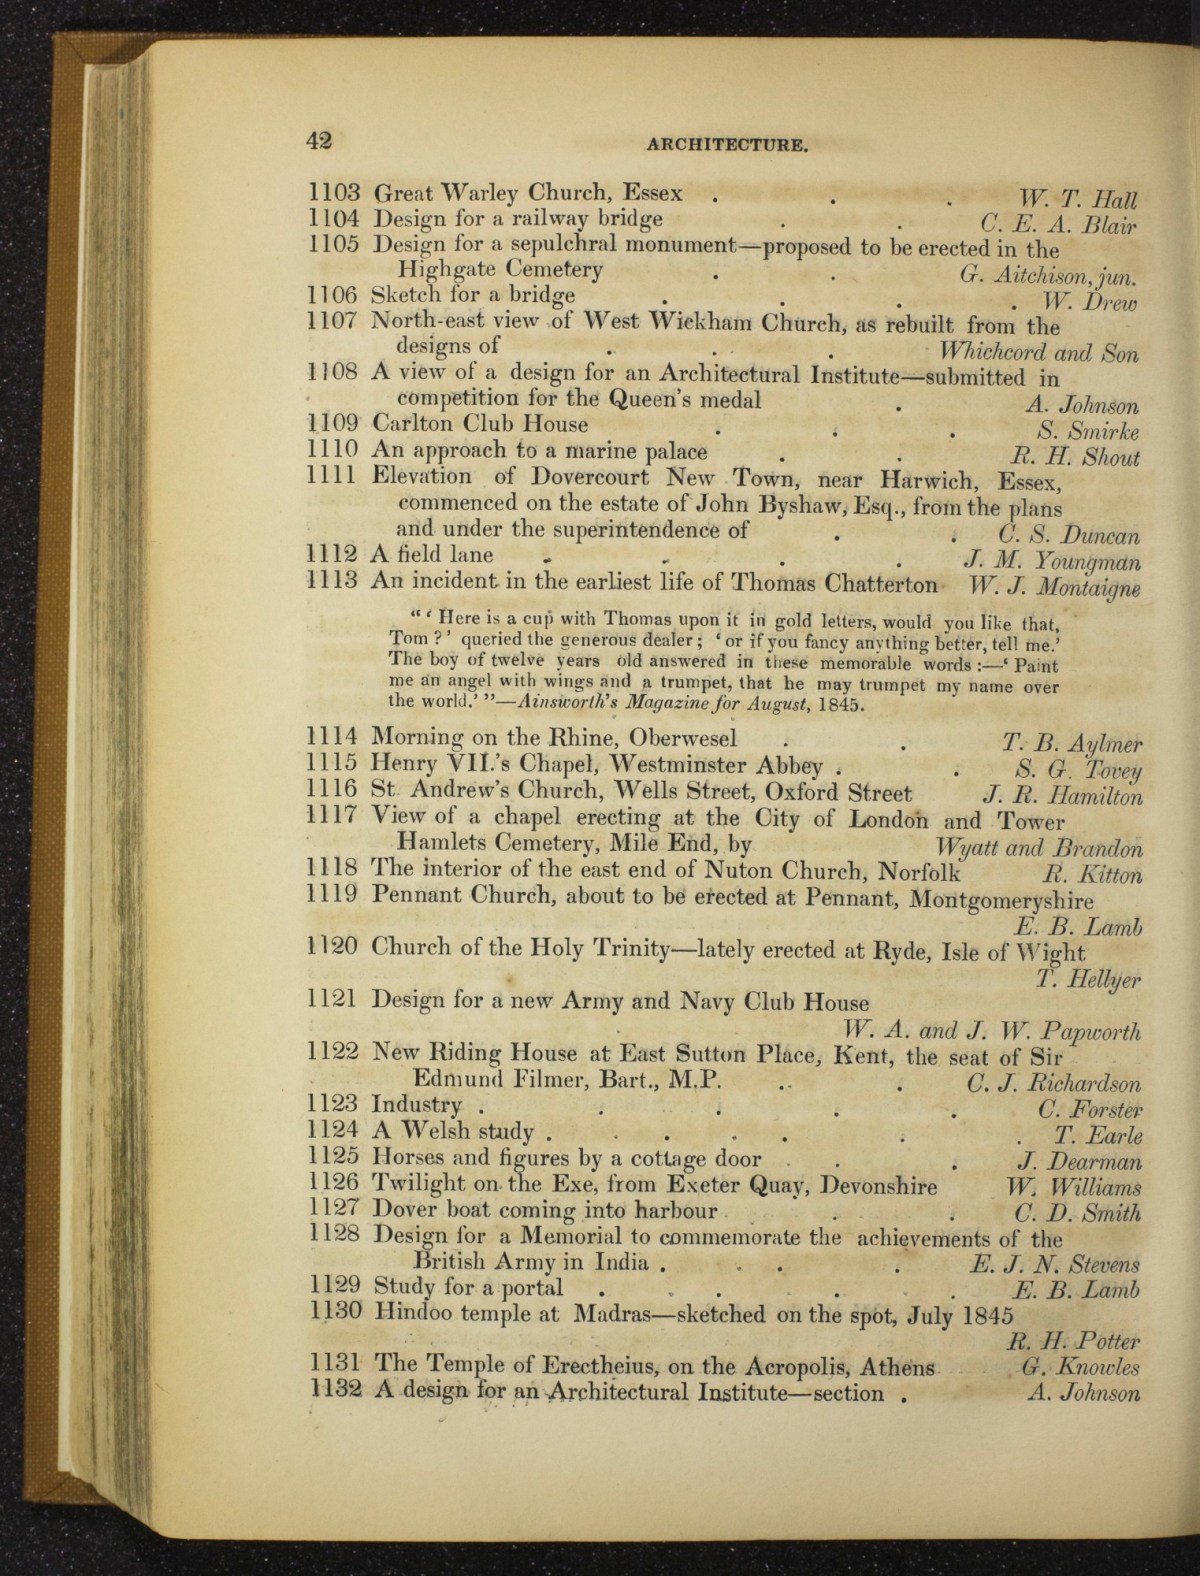 42 ARCHITECTURE.
1103 Great Warley Church, Essex . . . W. T. Hall
1104 Design for a railway bridge . . C. E. A. Blair
1105 Design for a sepulchral monument—proposed to be erected in the
Highgate Cemetery . . G. Aitchison, jun.
1106 Sketch for a bridge . . . . W. Drew
1107 North-east view of West Wickham Church, as rebuilt from the
designs of . . . Whichcord and Son
1108 A view of a design for an Architectural Institute—submitted in
competition for the Queen's medal . A. Johnson
1109 Carlton Club House . . . S. Smirke
1110 An approach to a marine palace . . R. H. Shout
1111 Elevation of Dovercourt New Town, near Harwich, Essex,
commenced on the estate of John Byshaw, Esq., from the plans
and under the superintendence of . . C. S. Duncan
1112 A field lane . . . . J. M. Youngman
1113 An incident in the earliest life of Thomas Chatterton W. J. Montaigne
“ ‘ Here is a cup with Thomas upon it in gold letters, would you like that,
Tom ?’ queried the generous dealer ; ‘ or if you fancy anything better, tell me.’
The boy of twelve years old answered in these memorable words :—‘ Paint
me an angel with wings and a trumpet, that he may trumpet my name over
the world.’ ”—Ainsworth's Magazine for August, 1845.
1114 Morning on the Rhine, Oberwesel . . T. B. Aylmer
1115 Henry VII.'s Chapel, Westminster Abbey . . S. G. Tovey
1116 St. Andrew's Church, Wells Street, Oxford Street J. R. Hamilton
1117 View of a chapel erecting at the City of London and Tower
Hamlets Cemetery, Mile End, by Wyatt and Brandon
1118 The interior of the east end of Nuton Church, Norfolk R. Kitton
1119 Pennant Church, about to be erected at Pennant, Montgomeryshire
E. B. Lamb
1120 Church of the Holy Trinity—lately erected at Ryde, Isle of Wight
T. Hellyer
1121 Design for a new Army and Navy Club House
W. A. and J. W. Papworth
1122 New Riding House at East Sutton Place, Kent, the seat of Sir
Edmund Filmer, Bart., M.P. . . C. J. Richardson
1123 Industry . . . . . C. Forster
1124 A Welsh study . . . . . T. Earle
1125 Horses and figures by a cottage door . . . J. Dearman
1126 Twilight on the Exe, from Exeter Quay, Devonshire W. Williams
1127 Dover boat coming into harbour . . . C. D. Smith
1128 Design for a Memorial to commemorate the achievements of the
British Army in India . . . E. J. N. Stevens
1129 Study for a portal . . . . E. B. Lamb
1130 Hindoo temple at Madras—sketched on the spot, July 1845
R. H. Potter
1131 The Temple of Erectheius, on the Acropolis, Athens G. Knowles
1132 A design for an Architectural Institute—section . A. Johnson